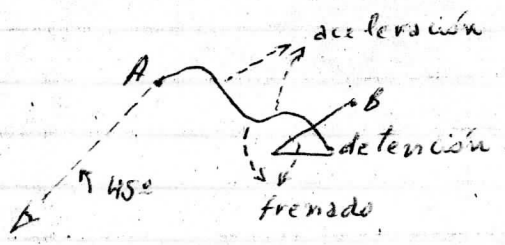 aceleración
A
B
detención
45º
frenado